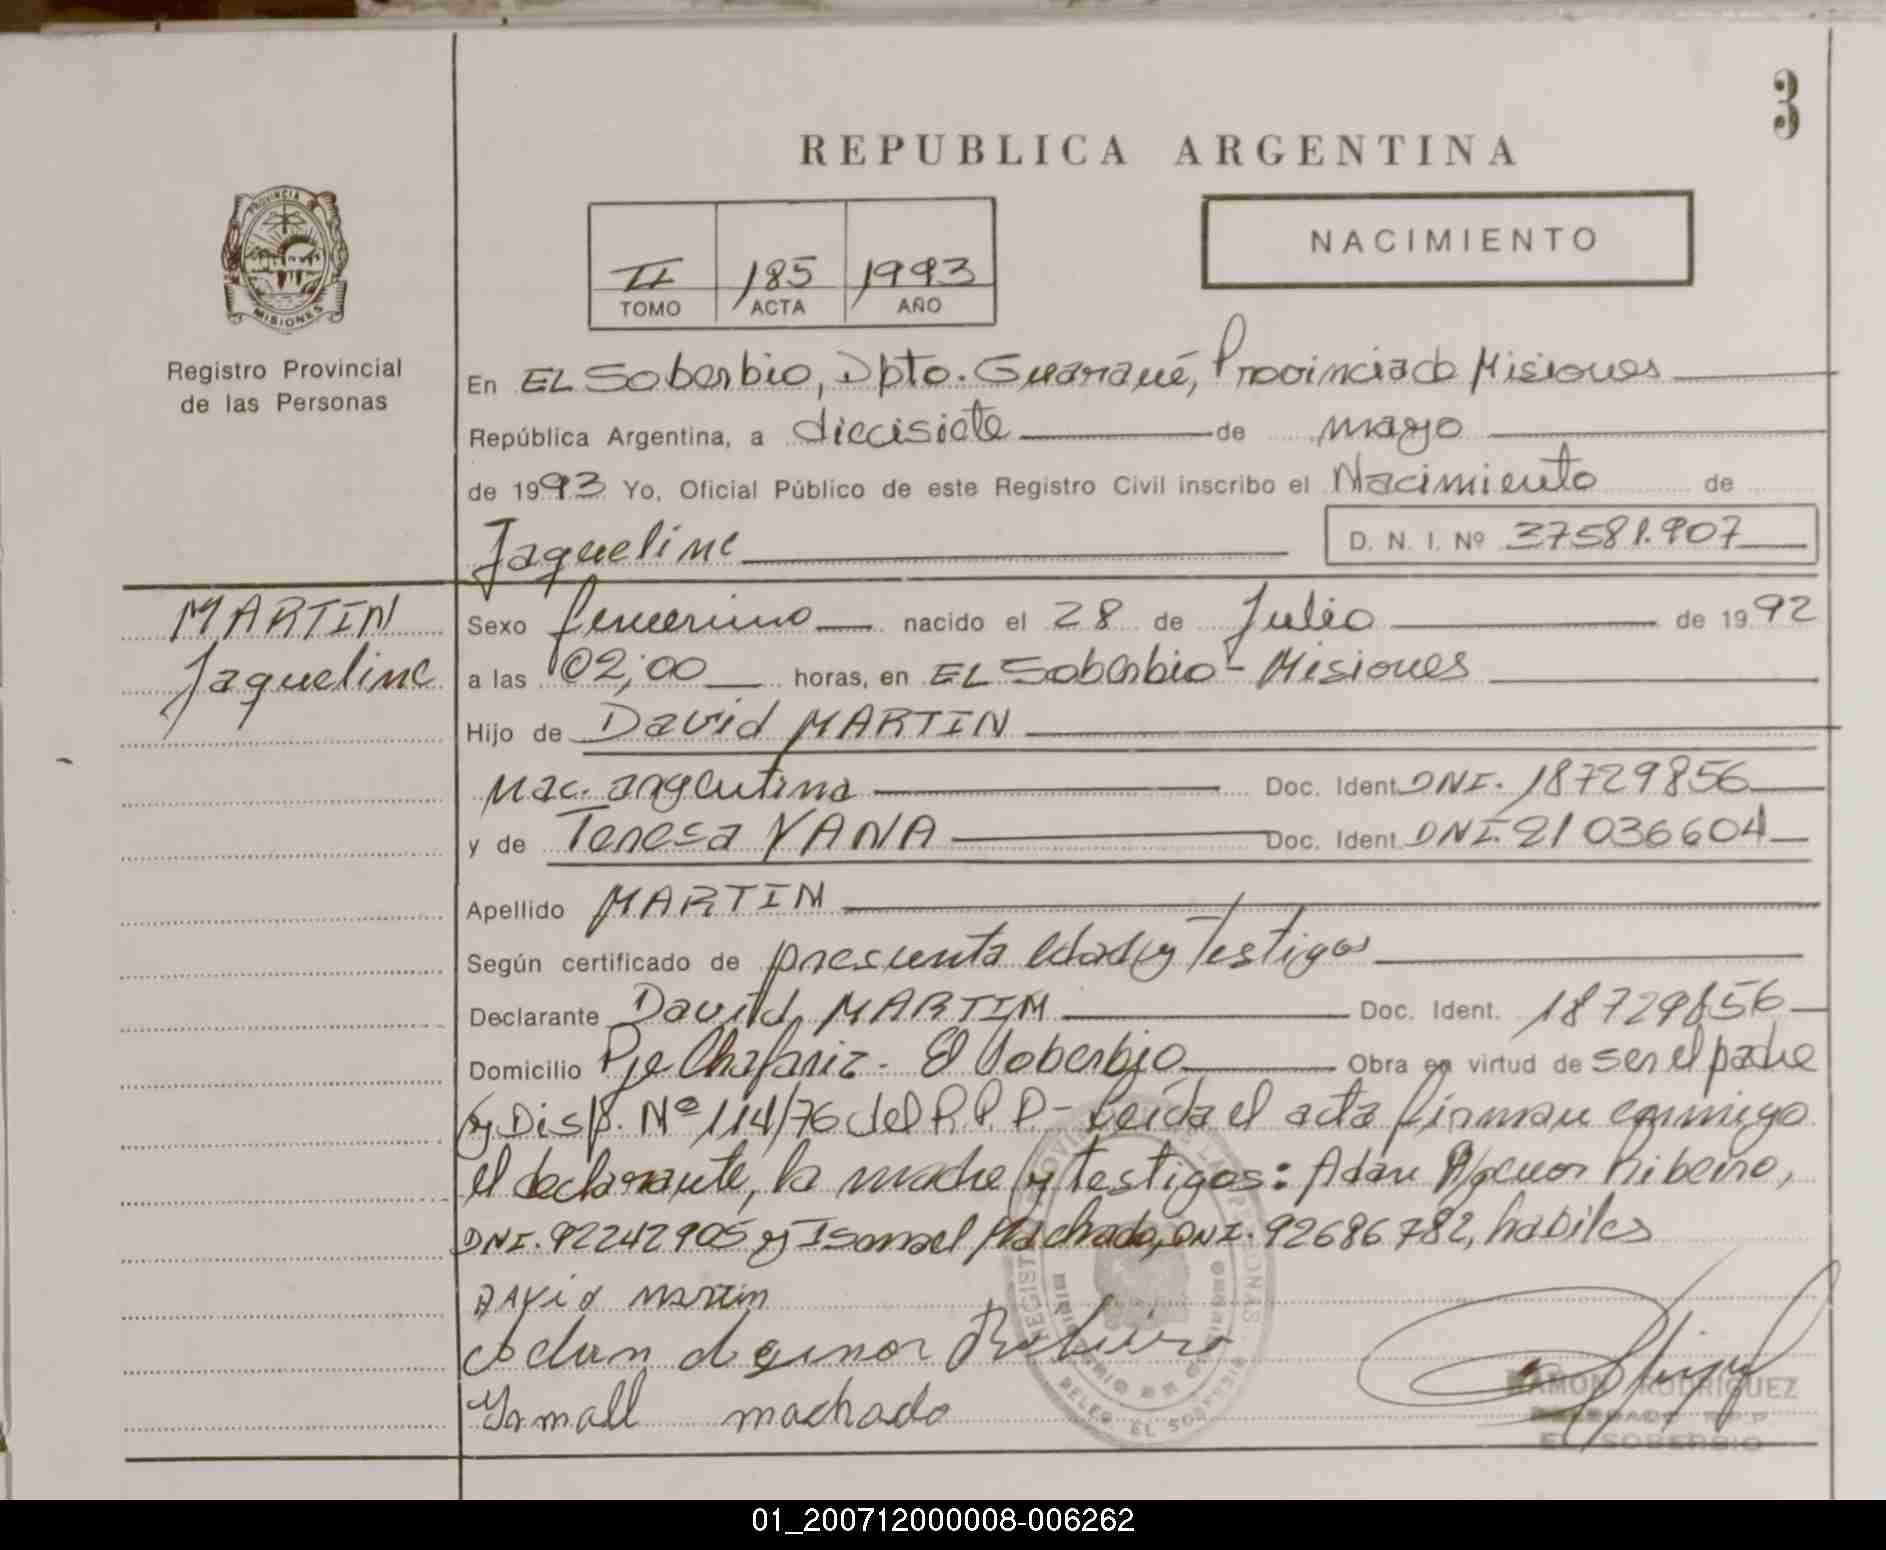 3
REPUBLICA ARGENTINA
PROVINCIA DE
MISIONES
NACIMIENTO
II 185 1993
TOMO ACTA AÑO
Registro Provincial
de las Personas
En EL Soberbio, Dpto. Guaraní, Provincia de Misiones
República Argentina, a diecisiete de mayo
de 1993 Yo, Oficial Público de este Registro Civil inscribo el Nacimiento de
Jaqueline D. N. I. Nº 37581.907
MARTIN
Jaqueline
Sexo femenino nacido el 28 de Julio de 1992
a las 02,00 horas, en EL Soberbio - Misiones
Hijo de David MARTIN
Nac. argentina Doc. Ident. DNI. 18729856
y de Teresa YANA Doc. Ident. DNI. 21036604
Apellido MARTIN
Según certificado de presunta edad y Testigos
Declarante David MARTIN Doc. Ident. 18729856
Domicilio Pje Chafariz - El Soberbio Obra en virtud de ser el padre
y Disp. Nº 114/76 del R.P.P - Leída el acta firman conmigo
el declarante, la madre y testigos: Adan Agenor Ribeiro,
DNI. 92242905 y Ismael Machado, DNI. 92686782, habiles
DAVid MARTin
Adan Agenor Ribeiro
Ysmall machado
REGISTRO PROVINCIAL DE LAS PERSONAS
MINISTERIO DE GOBIERNO
DELEG. EL SOBERBIO
RAMON RODRIGUEZ
DELEGADO R.P.P
EL SOBERBIO
01_200712000008-006262